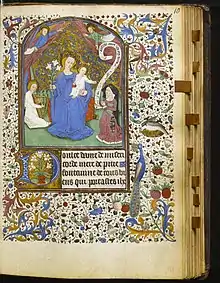 Doulce dame de miseri
corde mere de pitie
fontaine de tous bi
ens qui portastes ihu